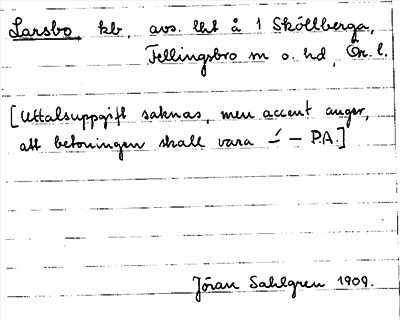 Larsbo kb, avs. lht å 1 Sköllberga,
Fellingsbro sn o. hd, Ör. l.
[Uttalsuppgift saknas, men accent anger,
att betoningen skall vara –́ – P.A.]
Jöran Sahlgren 1909.